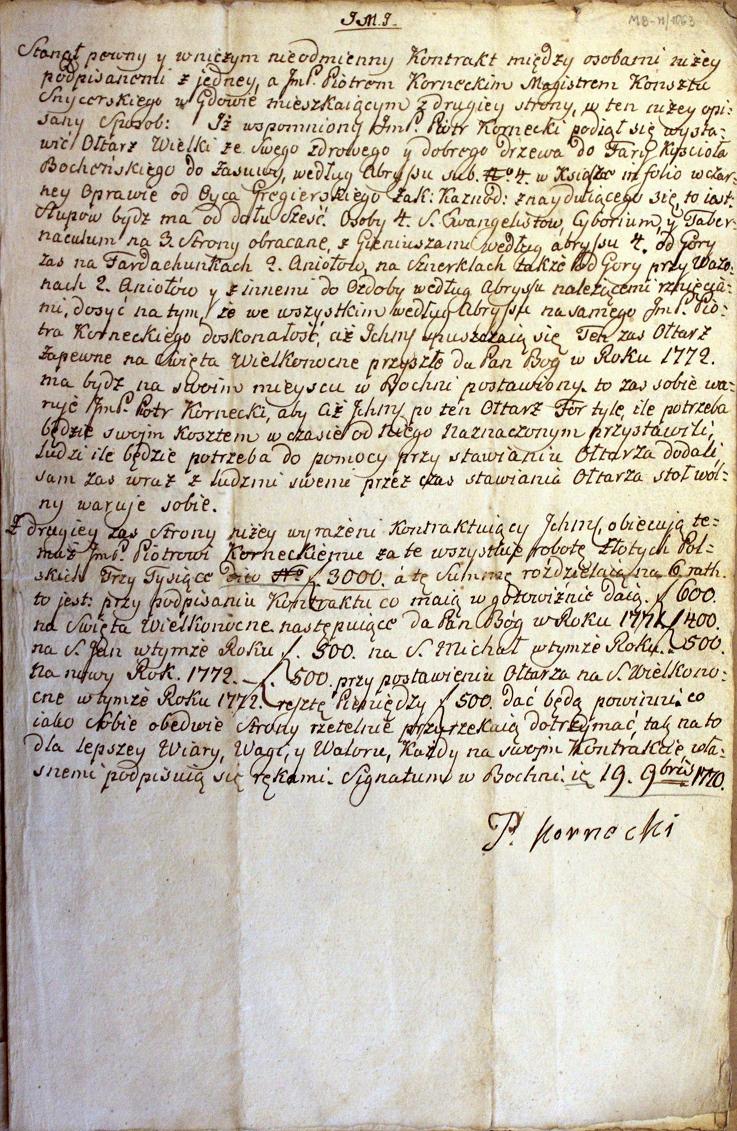 J.M.J.
MB-H/1063
Stanął pewny y wniczym nieodmienny Kontrakt między osobami niżey
podpisanemi z jedney, a Jmć P. Piotrem Korneckim Magistrem Konsztu
Snycerskiego w Gdowie mieszkaiącym z drugiey strony, w ten niżey opi-
sany Sposob: Iż wspomniony Jmć P. Piotr Kornecki podiął się wysta-
wić Ołtarz Wielki ze swego zdrowego y dobrego drzewa do Fary Kościoła
Bocheńskiego do zasuwy, według Abryssu sub. No 4. w Książce in folio wczar-
ney Oprawie od Oyca Gregierskiego Zak: Kaznod: znayduiącego się, to iest
Słupow bydz ma od dołu sześć. Osoby 4. S. Ewangelistow, Cyborium, y Taber-
naculum na 3. Strony obracane, z Gieniuszami według abryssu 4. od Gory
zas na Fardachunkach 2. Aniołow, na Sznerklach także od Gory przy Wazo-
nach 2. Aniołow y z innemi do Ozdoby według Abryssu należącemi rznięcia-
mi, dosyć na tym, że we wszystkim według Abryssu na samego Jmć P. Pio-
tra Korneckiego doskonałość, ciż Ichmć spuszczaią się. Ten zas Ołtarz
zapewne na Swięta Wielkonocne przyszłe da Pan Bog w Roku 1772.
ma bydz na swoim mieyscu w Bochni postawiony. to zas sobie wa-
ruje Jmć P. Piotr Kornecki, aby ciż Ichmć po ten Ołtarz For tyle, ile potrzeba
będzie swojm Kosztem w czasie od Niego Naznaczonym przystawili,
ludzi ile będzie potrzeba do pomocy przy stawianiu Ołtarza dodali,
sam zas wraz z ludzmi swemi przez czas stawiania Ołtarza stoł wol-
ny waruje sobie.
Z drugiey zas Strony niżey wyrażeni Kontraktuiący Ichmć, obiecuią te-
muż Jmć P. Piotrowi Korneckiemu za te wszystkie robotę Złotych Pol-
skich Trzy Tysiące No 3000. á tę Summę rozdzielaią na 6. rath.
to jest: przy podpisaniu Kontraktu co maią w gotowiznie daią. 600.
na Swięta Wielkonocne następuiące da Pan Bog w Roku 1771. 400.
na S. Jan wtymże Roku 500. na S. Michał wtymże Roku. 500.
na nowy Rok. 1772. 500. przy postawieniu Ołtarza na S. Wielkono-
cne wtymże Roku 1772. resztę Pieniędzy 500. dać będą powinni. co
iako sobie obedwie Strony rzetelnie przyrzekaią dotrzymać, tak na to
dla lepszey Wiary, Wagi, y Waloru, Każdy na swojm Kontrakcie wła-
snemi podpisuią się rękami. Signatum w Bochni. 19. 9bris 1770.
P. Kornecki